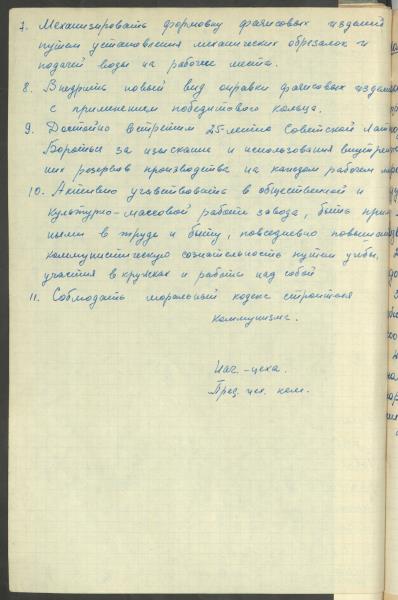 7. Механизировать формовку фаянсовых изделий
путем установления механических обрезалок и
подачей воды на рабочие места.
8. Внедрить новый вид оправки фаянсовых изделий
с применением победитового кольца.
9. Достойно встретим 25-летие Советской Латвии
Бороться за изыскание и использования внутрен-
них резервов производства на каждом рабочем месте
10. Активно учавствовать в общественной и
культурно-массовой работе завода, быть прим
ными в труде и быту, повседневно повышать
коммунистическую сознательность путем учебы,
участия в кружках и работы над собой
11. Соблюдать моральный кодекс строителя
коммунизма.
Нач. цеха.
Пред. цех. ком.